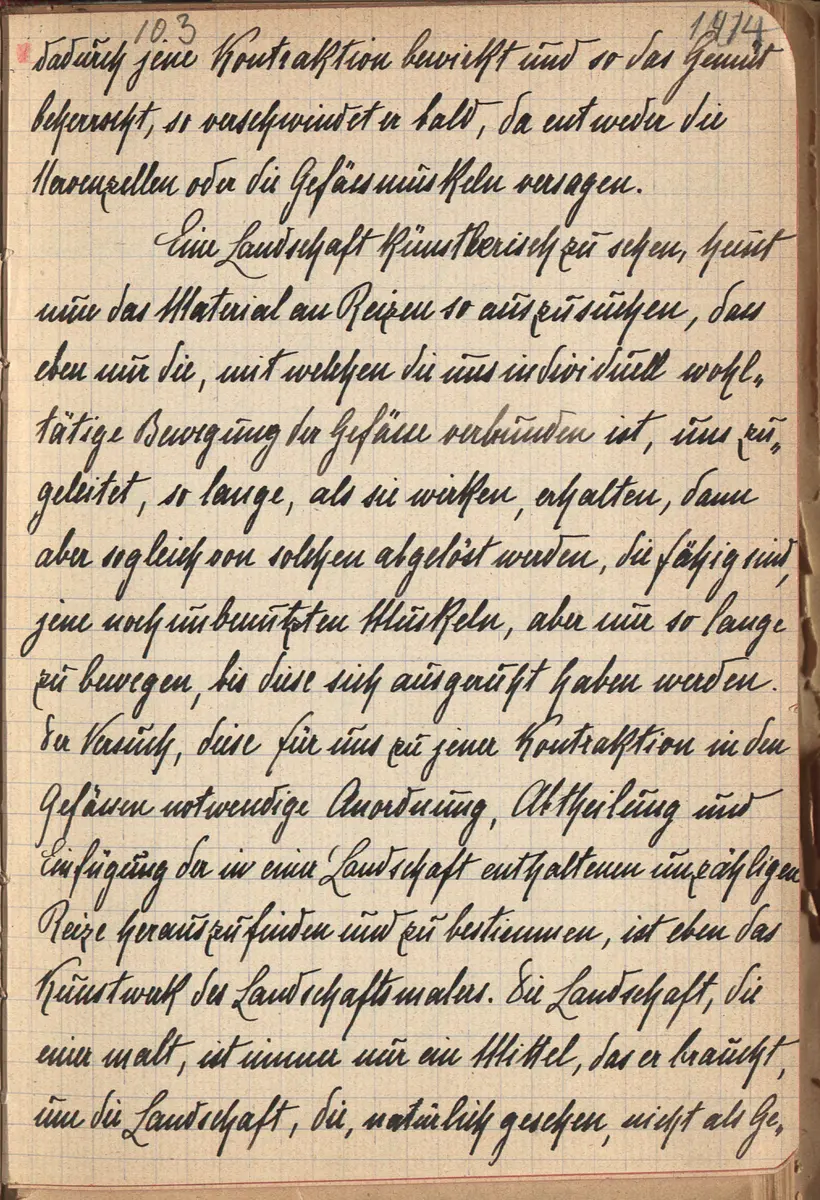 103 1414
dadurch jene Kontraktion bewirkt und so das Gemüt
beherrscht, so verschwindet er bald, da entweder die
Nervenzellen oder die Gefäesmuskeln versagen.
Eine Landschaft künstlerisch zu sehen, heisst
nur das Material an Reizen so auszusuchen, dass
eben nur die, mit welchen die uns individuell wohl„
tätige Bewegung der Gefässe verbunden ist, uns zu„
geleitet, so lange, als sie wirken, erhalten, dann
aber sogleich von solchen abgelöst werden, die fähig sind,
jene noch unbenutzten Muskeln, aber nur so lange
zu bewegen, bis diese sich ausgeruht haben werden.
Der Versuch, diese für uns zu jener Kontraktion in den
Gefässen notwendige Anordnung, Abtheilung und
Einfügung der in einer Landschaft enthaltenen unzähligen
Reize herauszufinden und zu bestimmen, ist eben das
Kunstwerk des Landschaftsmalers. Die Landschaft, die
einer malt, ist immer nur ein Mittel, das er braucht,
um die Landschaft, die, natürlich gesehen, nicht als Ge„